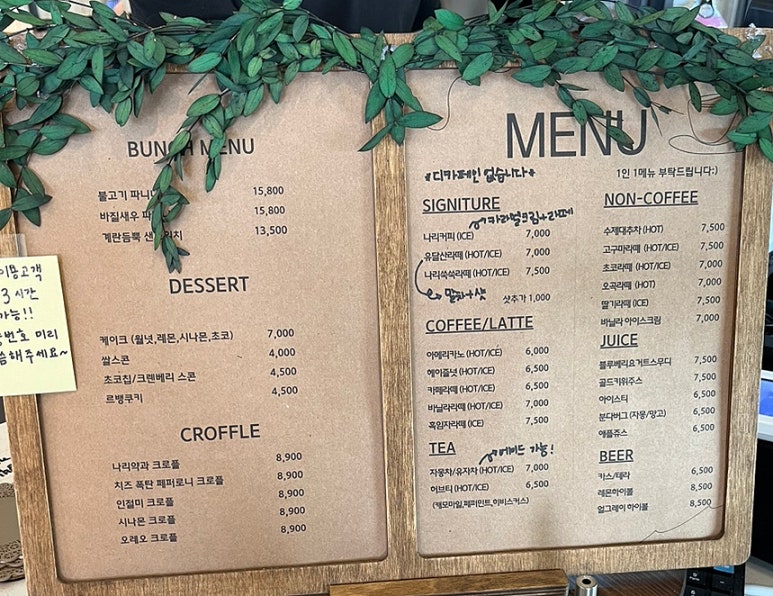 BUNCH MENU
불고기 파니니 15,800
바질새우 파 15,800
계란듬뿍 샌드위치 13,500
DESSERT
케이크 (월넛,레몬,시나몬,초코) 7,000
쌀스콘 4,000
초코칩/크렌베리 스콘 4,500
르뱅쿠키 4,500
CROFFLE
나리약과 크로플 8,900
치즈 폭탄 페퍼로니 크로플 8,900
인절미 크로플 8,900
시나몬 크로플 8,900
오레오 크로플 8,900
이용고객
3시간
가능!!
번호 미리
씀해주세요~
MENU
*디카페인 없습니다*
1인 1메뉴 부탁드립니다:)
SIGNITURE
카라멜크림+라떼
나리커피 (ICE) 7,000
유달산라떼 (HOT/ICE) 7,000
나리쑥쑥라떼 (HOT/ICE) 7,500
말차+샷
샷추가 1,000
COFFEE/LATTE
아메리카노 (HOT/ICE) 6,000
헤이즐넛 (HOT/ICE) 6,500
카페라떼 (HOT/ICE) 6,500
바닐라라떼 (HOT/ICE) 7,000
흑임자라떼 (HOT/ICE) 7,500
TEA
에이드 가능!
자몽차/유자차 (HOT/ICE) 7,000
허브티 (HOT/ICE) 6,500
(캐모마일,페퍼민트,히비스커스)
NON-COFFEE
수제대추차 (HOT) 7,500
고구마라떼 (HOT/ICE) 7,500
초코라떼 (HOT/ICE) 7,000
오곡라떼 (HOT) 7,000
딸기라떼 (ICE) 7,500
바닐라 아이스크림 7,000
JUICE
블루베리요거트스무디 7,500
골드키위주스 7,500
아이스티 6,500
분다버그 (자몽/망고) 6,500
애플쥬스 6,500
BEER
카스/테라 6,500
레몬하이볼 8,500
얼그레이 하이볼 8,500